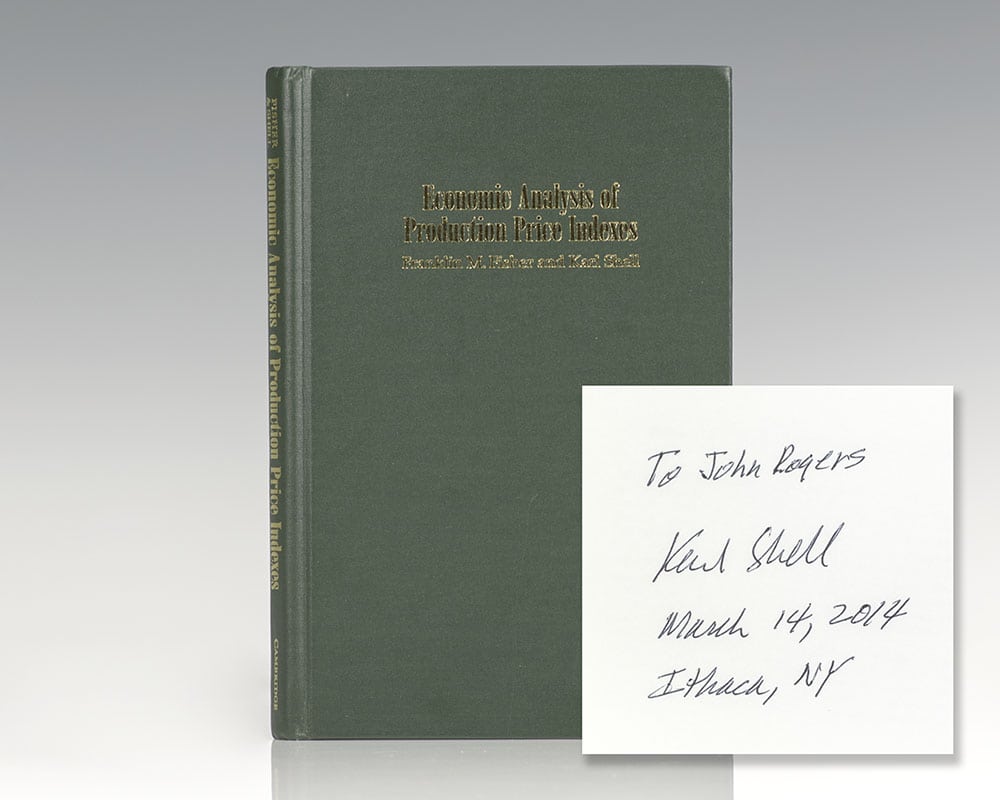 FISHER
& SHELL
Economic Analysis of Production Price Indexes
CAMBRIDGE
Economic Analysis of
Production Price Indexes
Franklin M. Fisher and Karl Shell
To John Rogers
Karl Shell
March 14, 2014
Ithaca, NY